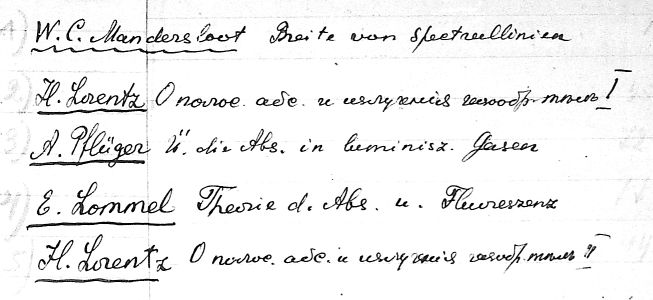 1) W. C. Mandersloot Breite von Spectrallinien
2) H. Lorentz О полос. абс. и излучения газообр. тѣлъ I
3) A. Pflüger Ü. die Abs. in luminisz. Gasen
4) E. Lommel Theorie d. Abs. u. Fluoreszenz
5) H. Lorentz О полос. абс. и излучения газообр. тѣлъ II